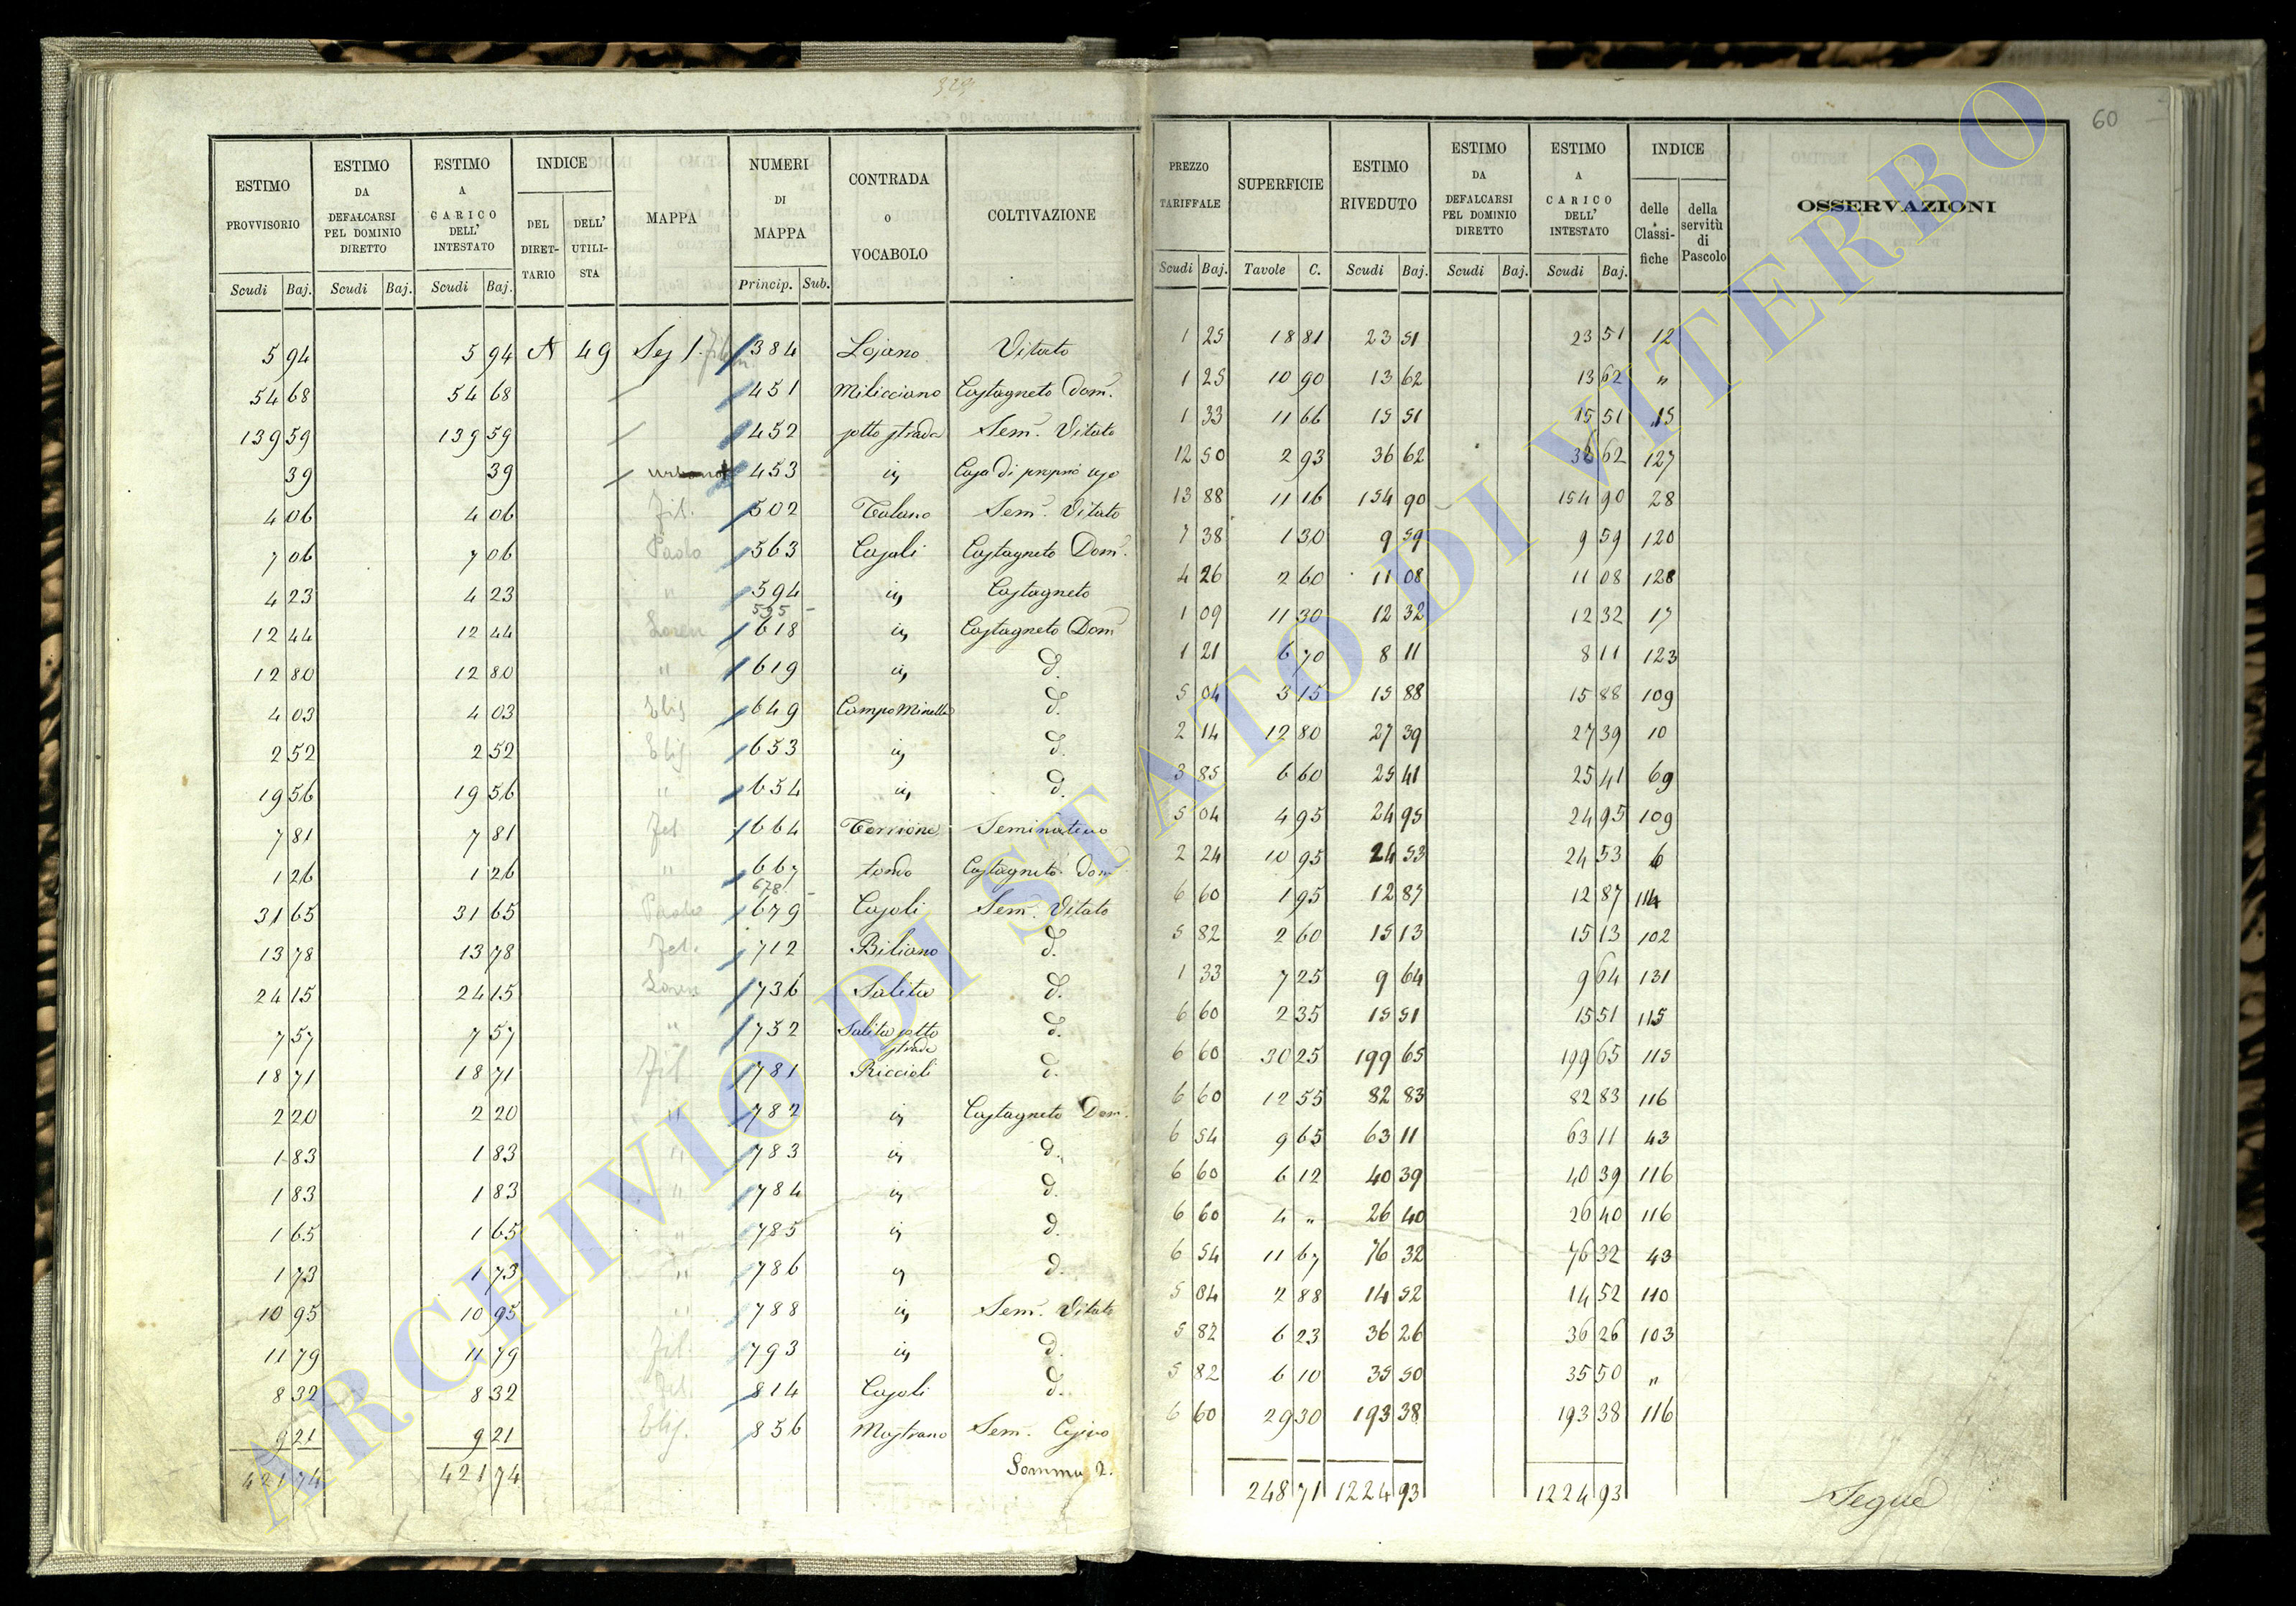 323
60
ESTIMO PROVVISORIO | ESTIMO DA DEFALCARSI PEL DOMINIO DIRETTO | ESTIMO A CARICO DELL' INTESTATO | INDICE DEL DIRET-TARIO | DELL' UTILI-STA | MAPPA | NUMERI DI MAPPA | CONTRADA o VOCABOLO | COLTIVAZIONE | PREZZO TARIFFALE | SUPERFICIE | ESTIMO RIVEDUTO | ESTIMO DA DEFALCARSI PEL DOMINIO DIRETTO | ESTIMO A CARICO DELL' INTESTATO | INDICE delle Classi-fiche | della servitù di Pascolo | OSSERVAZIONI
Scudi | Baj. | Scudi | Baj. | Scudi | Baj. | Princip. | Sub. | Scudi | Baj. | Tavole | C. | Scudi | Baj. | Scudi | Baj. | Scudi | Baj.
5 94 | 5 94 | A | 49 | Sez 1 | 384 | Lojano | Vitato | 1 25 | 18 81 | 23 51 | 23 51 | 12
54 68 | 54 68 | 451 | Milicciano | Castagneto Dom. | 1 25 | 10 90 | 13 62 | 13 62 | "
139 59 | 139 59 | 452 | sotto strada | Sem. Vitato | 1 33 | 11 66 | 15 51 | 15 51 | 15
39 | 39 | urbano | 453 | iv | Casa di proprio uso | 12 50 | 2 93 | 36 62 | 36 62 | 127
4 06 | 4 06 | Fil. | 502 | Talano | Sem. Vitato | 13 88 | 11 16 | 154 90 | 154 90 | 28
7 06 | 7 06 | Paolo | 563 | Casali | Castagneto Dom. | 7 38 | 1 30 | 9 59 | 9 59 | 120
4 23 | 4 23 | " | 594 | iv | Castagneto | 4 26 | 2 60 | 11 08 | 11 08 | 128
595
12 44 | 12 44 | Loren | 618 | iv | Castagneto Dom | 1 09 | 11 30 | 12 32 | 12 32 | 17
12 80 | 12 80 | " | 619 | iv | d. | 1 21 | 6 70 | 8 11 | 8 11 | 123
4 03 | 4 03 | Elis | 649 | Campo Minella | d. | 5 04 | 3 15 | 15 88 | 15 88 | 109
2 52 | 2 52 | Elis. | 653 | iv | d. | 2 14 | 12 80 | 27 39 | 27 39 | 10
19 56 | 19 56 | " | 654 | iv | d. | 3 85 | 6 60 | 25 41 | 25 41 | 69
7 81 | 7 81 | Fel | 664 | Torrione | Seminativo | 5 04 | 4 95 | 24 95 | 24 95 | 109
1 26 | 1 26 | " | 667 | tondo | Castagneto Dom | 2 24 | 10 95 | 24 53 | 24 53 | 6
678
31 65 | 31 65 | Paolo | 679 | Casali | Sem. Vitato | 6 60 | 1 95 | 12 87 | 12 87 | 114
13 78 | 13 78 | Fel. | 712 | Biliano | d. | 5 82 | 2 60 | 15 13 | 15 13 | 102
24 15 | 24 15 | Loren | 736 | Salita | d. | 1 33 | 7 25 | 9 64 | 9 64 | 131
7 57 | 7 57 | " | 752 | Salita sotto strada | d. | 6 60 | 2 35 | 15 51 | 15 51 | 115
18 71 | 18 71 | Fil | 781 | Riccioli | d. | 6 60 | 30 25 | 199 65 | 199 65 | 115
2 20 | 2 20 | " | 782 | iv | Castagneto Dom. | 6 60 | 12 55 | 82 83 | 82 83 | 116
1 83 | 1 83 | " | 783 | iv | d. | 6 54 | 9 65 | 63 11 | 63 11 | 43
1 83 | 1 83 | " | 784 | iv | d. | 6 60 | 6 12 | 40 39 | 40 39 | 116
1 65 | 1 65 | " | 785 | iv | d. | 6 60 | 4 " | 26 40 | 26 40 | 116
1 73 | 1 73 | " | 786 | iv | d. | 6 54 | 11 67 | 76 32 | 76 32 | 43
10 95 | 10 95 | " | 788 | iv | Sem. Vitato | 5 04 | 2 88 | 14 52 | 14 52 | 110
11 79 | 11 79 | Fil. | 793 | iv | d. | 5 82 | 6 23 | 36 26 | 36 26 | 103
8 32 | 8 32 | Fel. | 814 | Casali | d. | 5 82 | 6 10 | 35 50 | 35 50 | "
9 21 | 9 21 | Elis. | 856 | Mastrano | Sem. Cesivo | 6 60 | 29 30 | 193 38 | 193 38 | 116
421 74 | 421 74 | Somma 2. | 248 71 | 1224 93 | 1224 93 | Segue
ARCHIVIO DI STATO DI VITERBO